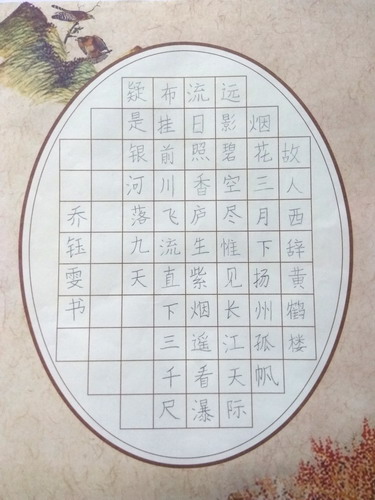 故人西辞黄鹤楼
烟花三月下扬州孤帆
远影碧空尽惟见长江天际
流日照香庐生紫烟遥看瀑
布挂前川飞流直下三千尺
疑是银河落九天
乔钰雯书